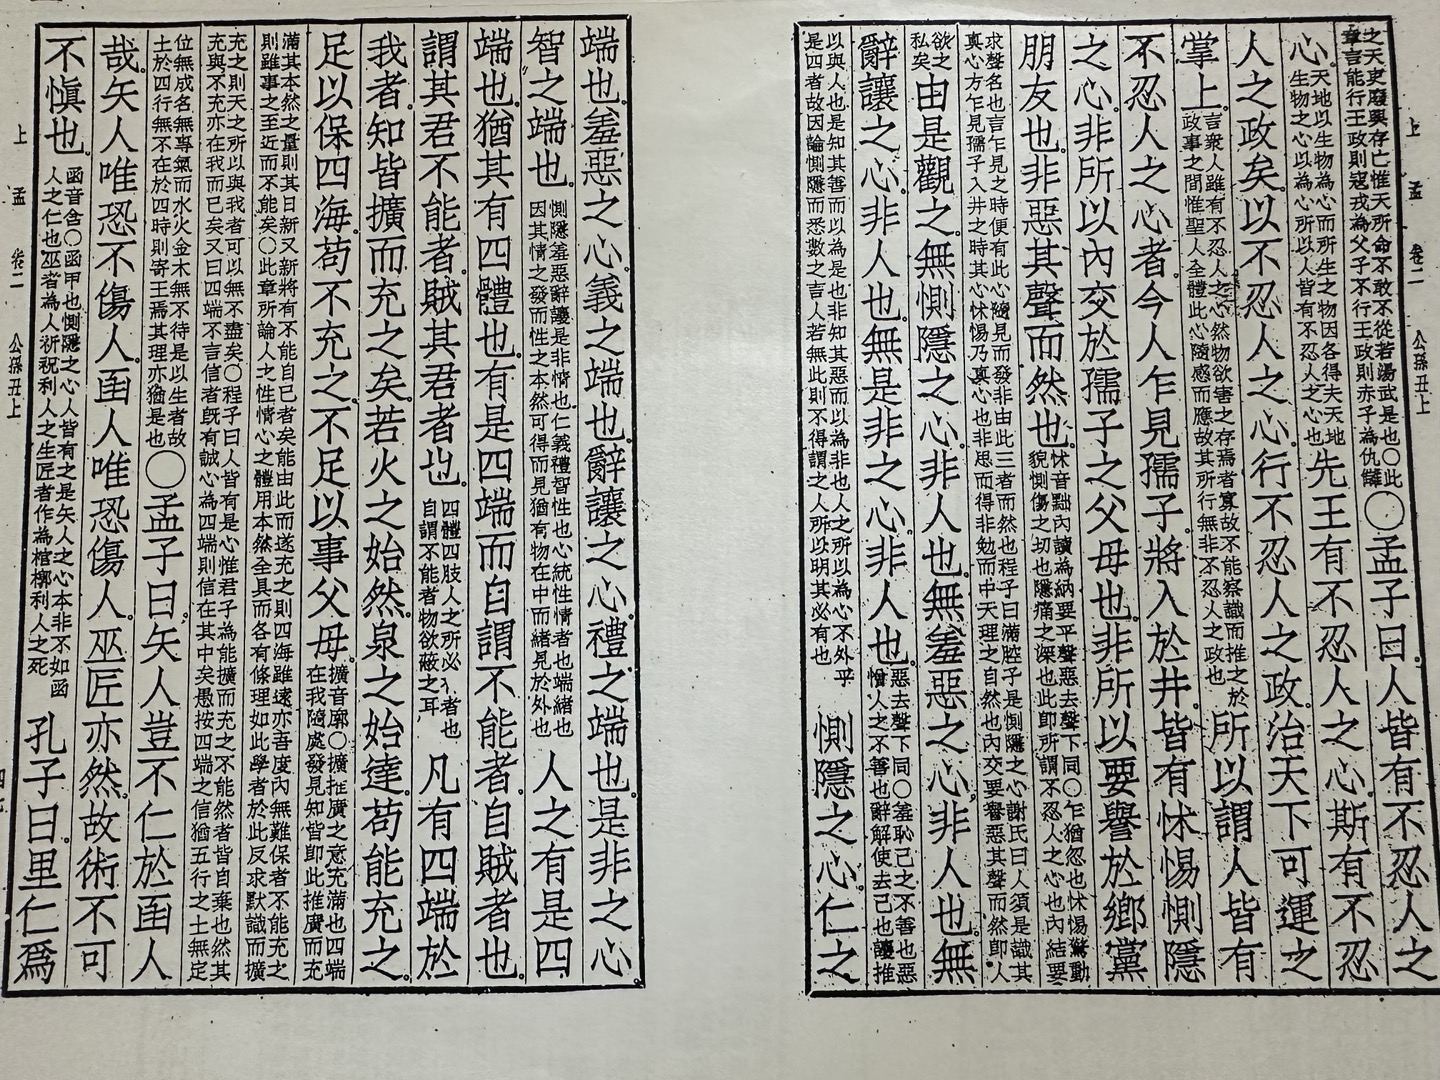 之天吏廢興存亡惟天所命不敢不從若湯武是也○此
章言能行王政則寇戎為父子不行王政則赤子為仇讎
○孟子曰人皆有不忍人之
心
天地以生物為心而所生之物因各得夫天地
生物之心以為心所以人皆有不忍人之心也
先王有不忍人之心斯有不忍
人之政矣以不忍人之心行不忍人之政治天下可運之
掌上
言衆人雖有不忍人之心然物欲害之存焉者寡故不能察識而推之於
政事之間惟聖人全體此心隨感而應故其所行無非不忍人之政也
所以謂人皆有
不忍人之心者今人乍見孺子將入於井皆有怵惕惻隱
之心非所以內交於孺子之父母也非所以要譽於鄉黨
朋友也非惡其聲而然也
怵音黜內讀為納要平聲惡去聲下同○乍猶忽也怵惕驚動
貌惻傷之切也隱痛之深也此即所謂不忍人之心也內結要
求聲名也言乍見之時便有此心隨見而發非由此三者而然也程子曰滿腔子是惻隱之心謝氏曰人須是識其
真心方乍見孺子入井之時其心怵惕乃真心也非思而得非勉而中天理之自然也內交要譽惡其聲而然即人
欲之
私矣
由是觀之無惻隱之心非人也無羞惡之心非人也無
辭讓之心非人也無是非之心非人也
惡去聲下同○羞恥己之不善也惡
憎人之不善也辭解使去己也讓推
以與人也是知其善而以為是也非知其惡而以為非也人之所以為心不外乎
是四者故因論惻隱而悉數之言人若無此則不得謂之人所以明其必有也
惻隱之心仁之
上 孟 卷二 公孫丑上
端也羞惡之心義之端也辭讓之心禮之端也是非之心
智之端也
惻隱羞惡辭讓是非情也仁義禮智性也心統性情者也端緒也
因其情之發而性之本然可得而見猶有物在中而緒見於外也
人之有是四
端也猶其有四體也有是四端而自謂不能者自賊者也
謂其君不能者賊其君者也
四體四肢人之所必有者也
自謂不能者物欲蔽之耳
凡有四端於
我者知皆擴而充之矣若火之始然泉之始達苟能充之
足以保四海苟不充之不足以事父母
擴音廓○擴推廣之意充滿也四端
在我隨處發見知皆即此推廣而充
滿其本然之量則其日新又新將有不能自已者矣能由此而遂充之則四海雖遠亦吾度內無難保者不能充之
則雖事之至近而不能矣○此章所論人之性情心之體用本然全具而各有條理如此學者於此反求默識而擴
充之則天之所以與我者可以無不盡矣○程子曰人皆有是心惟君子為能擴而充之不能然者皆自棄也然其
充與不充亦在我而已矣又曰四端不言信者旣有誠心為四端則信在其中矣愚按四端之信猶五行之土無定
位無成名無專氣而水火金木無不待是以生者故
土於四行無不在於四時則寄王焉其理亦猶是也
○孟子曰矢人豈不仁於函人
哉矢人唯恐不傷人函人唯恐傷人巫匠亦然故術不可
不愼也
函音含○函甲也惻隱之心人皆有之是矢人之心本非不如函
人之仁也巫者為人祈祝利人之生匠者作為棺槨利人之死
孔子曰里仁爲
上 孟 卷二 公孫丑上 四七